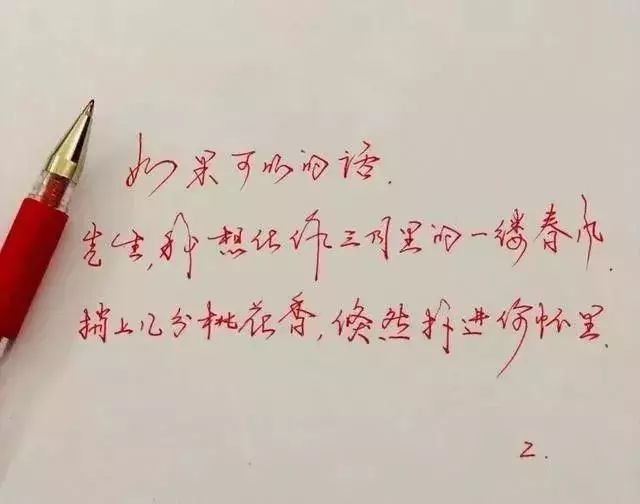 如果可以的话.
先生,我想化作三月里的一缕春风.
捎上几分桃花香,倏然扑进你怀里.
2.